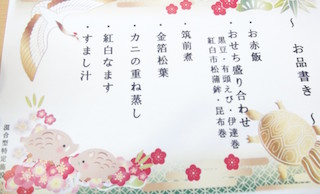 ～お品書き～
・お赤飯
・おせち盛り合わせ
黒豆・有頭えび・伊達巻
紅白市松蒲鉾・昆布巻
・筑前煮
・金箔松葉
・カニの重ね蒸し
・紅白なます
・すまし汁
混合型特定施